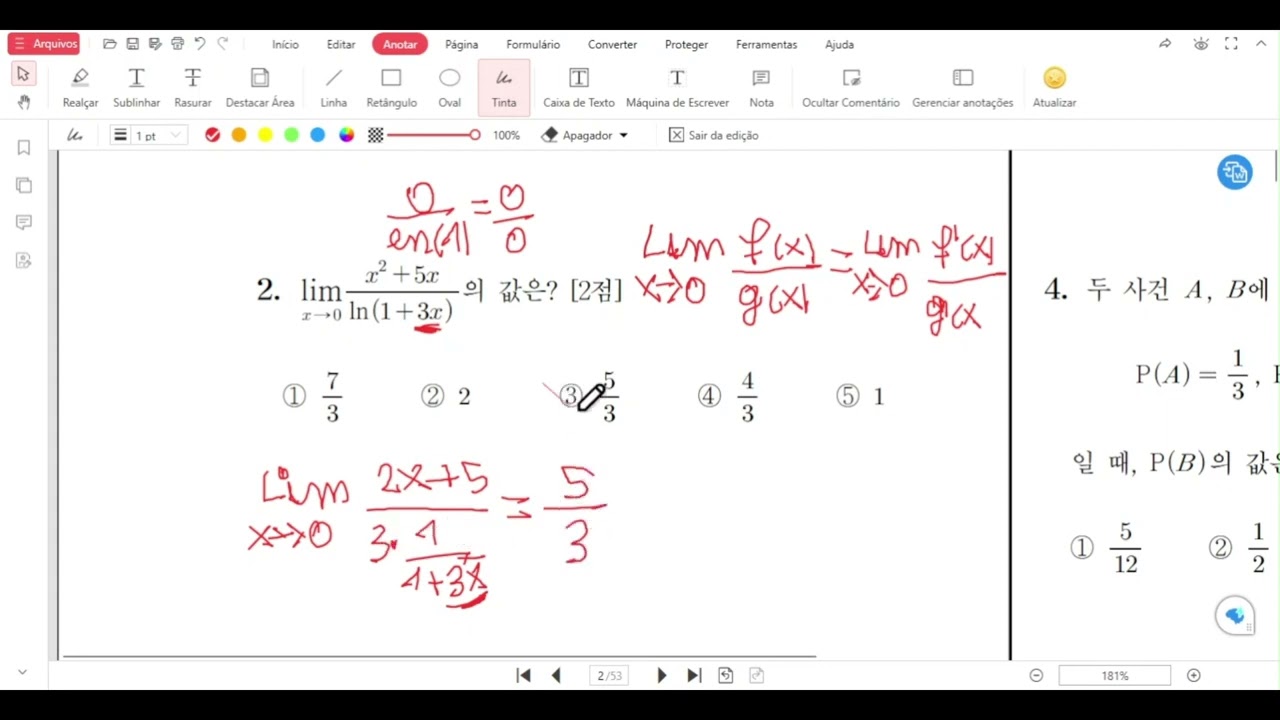 Arquivos Início Editar Anotar Página Formulário Converter Proteger Ferramentas Ajuda
Realçar Sublinhar Rasurar Destacar Área Linha Retângulo Oval Tinta Caixa de Texto Máquina de Escrever Nota Ocultar Comentário Gerenciar anotações Atualizar
1 pt 100% Apagador Sair da edição
0/en(1) = 0/0
Lim x→0 f(x)/g(x) = Lim x→0 f'(x)/g'(x
2. lim x→0 (x² + 5x)/ln(1+3x) 의 값은? [2점]
① 7/3 ② 2 ③ 5/3 ④ 4/3 ⑤ 1
Lim x→0 (2x+5)/(3·1/(1+3x)) = 5/3
4. 두 사건 A, B에
P(A) = 1/3,
일 때, P(B)의 값은
① 5/12 ② 1/2
2/53 181%